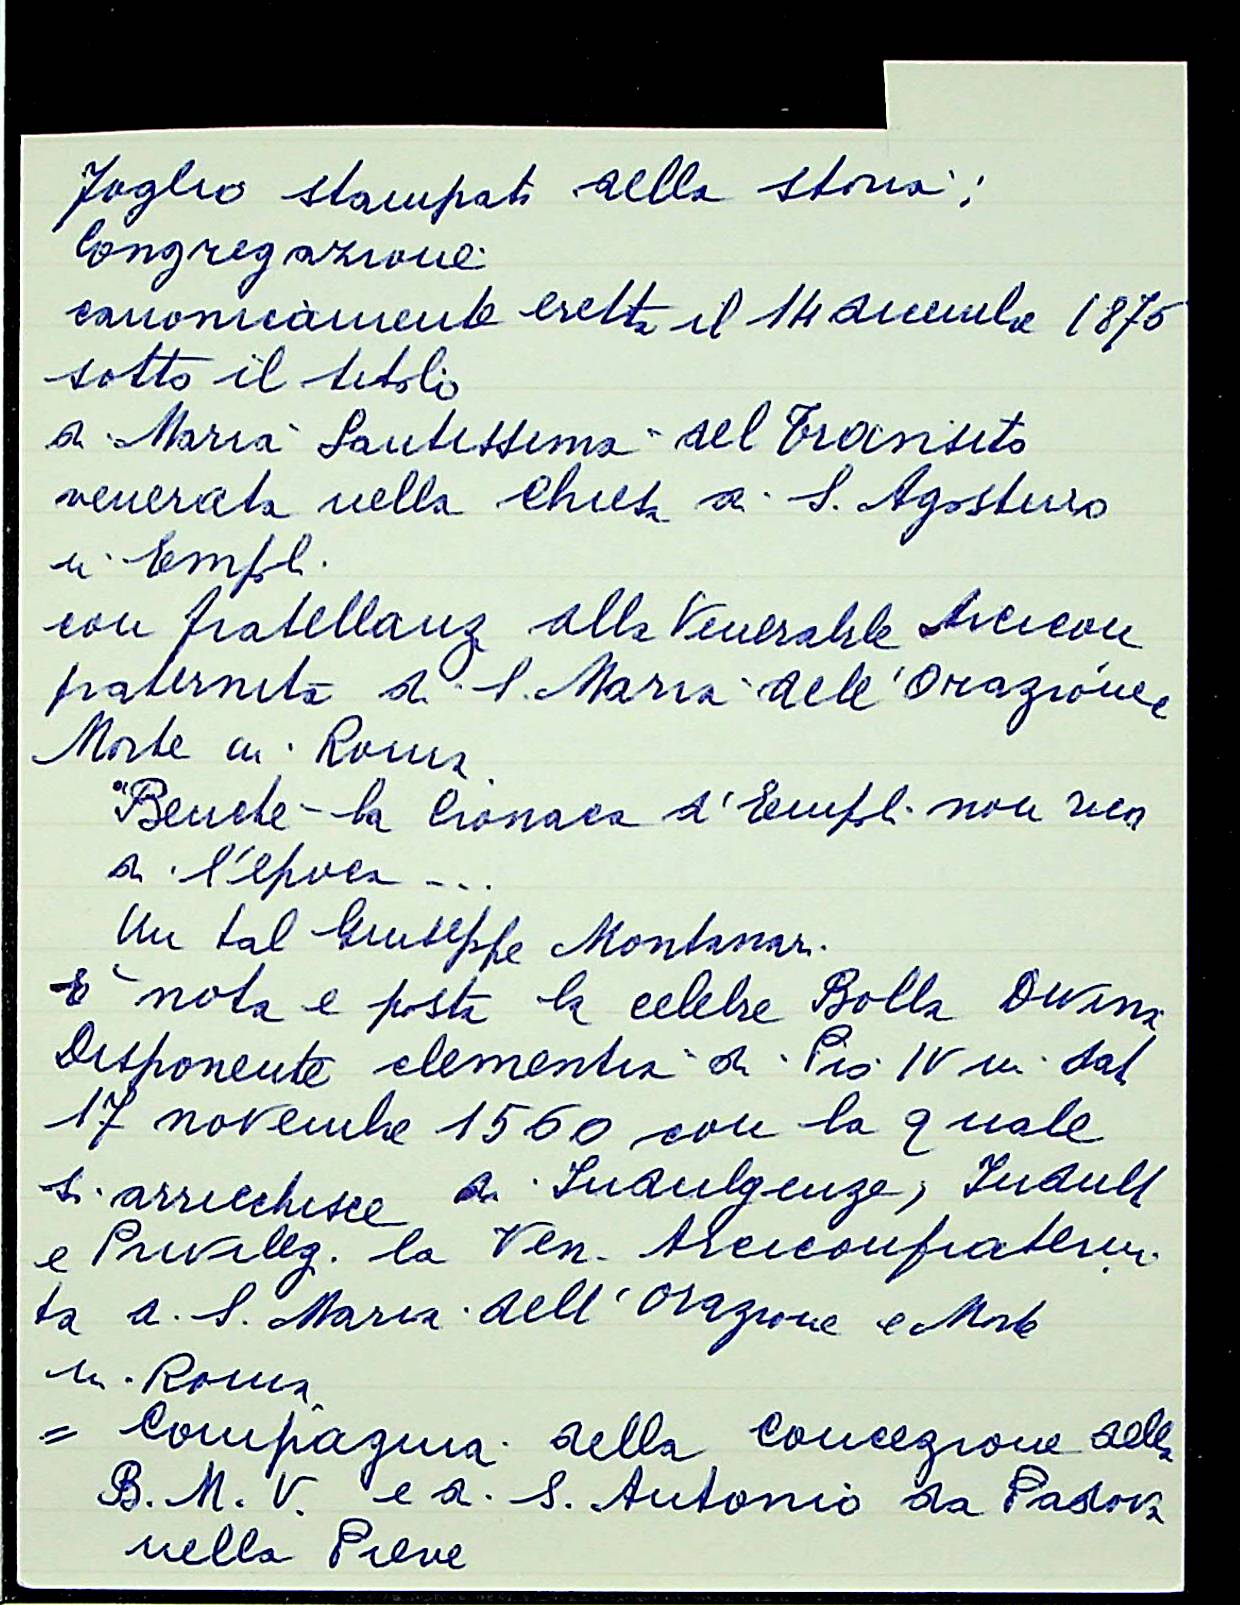 Foglio stampato della storia;
Congregazione
canonicamente eretta il 14 dicembre 1875
sotto il titolo
di Maria Santissima del Transito
venerata nella Chiesa di S. Agostino
in Empoli.
con fratellanza alla Venerabile Arcicon
fraternita di S. Maria dell'Orazione e
Morte in Roma.
"Benche la Cronaca d'Empoli non rica
di l'epoca ...
Un tal Giuseppe Montanari.
E' nota e posta la celebre Bolla Divina
Disponente clementia di Pio IV in dat
17 novembre 1560 con la quale
si arricchisce di Indulgenze, Indulti
e Privileg. la Ven. Arciconfraterni
ta di S. Maria dell'Orazione e Morte
in Roma.
= Compagnia della Concezione della
B. M. V. e di S. Antonio da Padova
nella Pieve